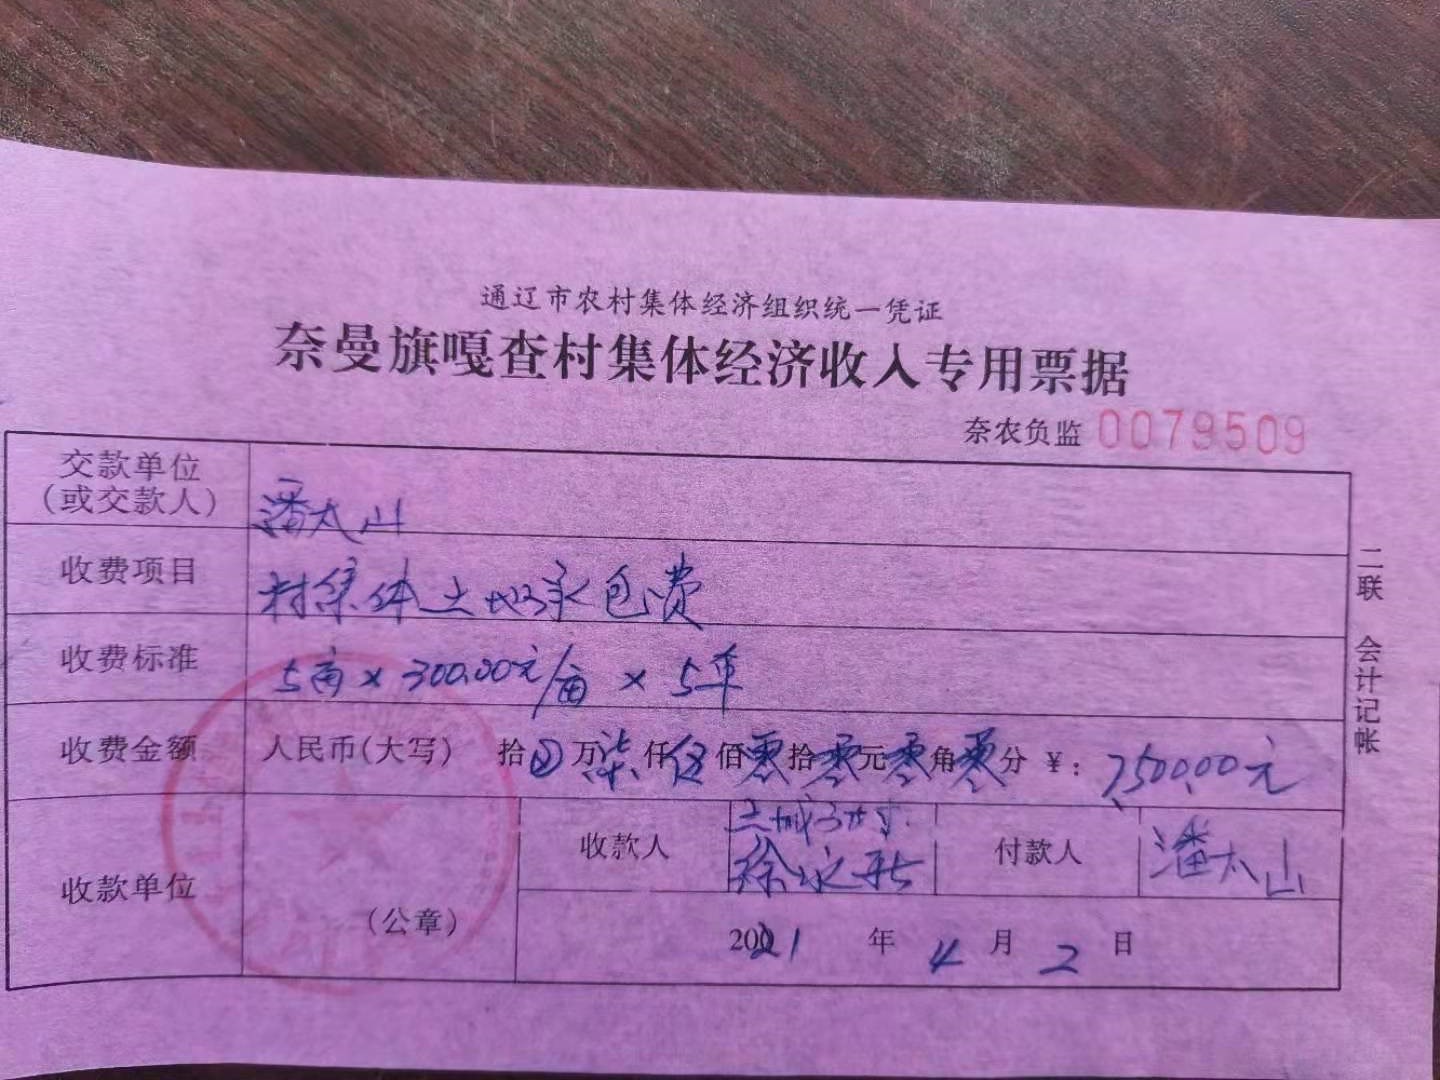 通辽市农村集体经济组织统一凭证
奈曼旗嘎查村集体经济收入专用票据
奈农负监 0079509
交款单位
(或交款人)
潘太山
收费项目
村集体土地承包费
收费标准
5亩×300.00元/亩×5年
收费金额
人民币(大写) 拾 万柒仟伍佰零拾零元零角零分 ￥: 7500.00元
收款单位
(公章)
收款人
土城子村
徐永新
付款人
潘太山
2021 年 4 月 2 日
二联 会计记帐